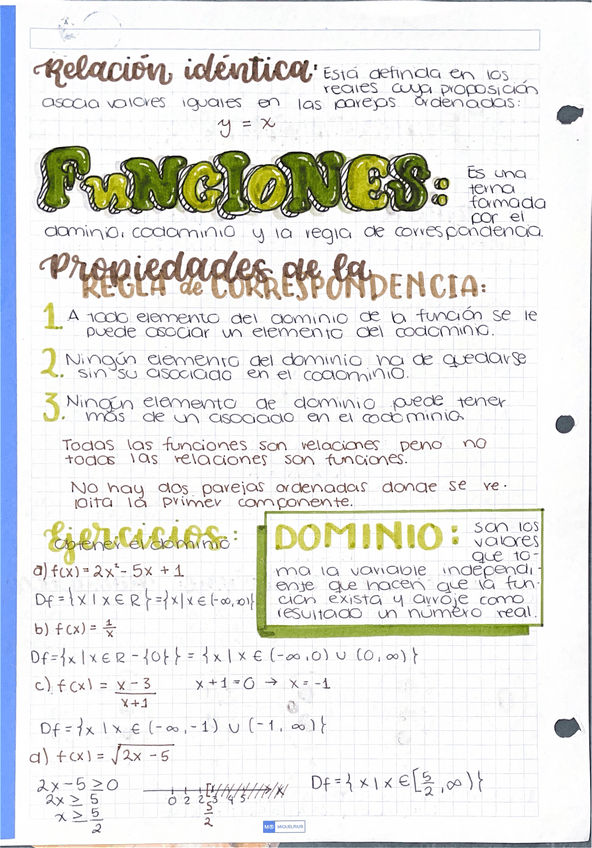 Relación idéntica: Está definida en los
reales cuya proposición
asocia valores iguales en las parejas ordenadas:
y = x
FUNCIONES: Es una
terna
formada
por el
dominio, codominio y la regla de correspondencia.
Propiedades de la
REGLA de CORRESPONDENCIA:
1. A todo elemento del dominio de la función se le
puede asociar un elemento del codominio.
2. Ningún elemento del dominio ha de quedarse
sin su asociado en el codominio.
3. Ningún elemento de dominio puede tener
más de un asociado en el codominio.
Todas las funciones son relaciones pero no
todas las relaciones son funciones.
No hay dos parejas ordenadas donde se re-
pita la primer componente.
Ejercicios:
Obtener el dominio
DOMINIO: son los
valores
que to-
ma la variable independi-
ente que hacen que la fun-
ción exista y arroje como
resultado un número real.
a) f(x) = 2x² - 5x + 1
Df = {x | x ∈ R} = {x | x ∈ (-∞, ∞)}
b) f(x) = 1/x
Df = {x | x ∈ R - {0}} = {x | x ∈ (-∞, 0) ∪ (0, ∞)}
c) f(x) = x-3/x+1 x+1 = 0 → x = -1
Df = {x | x ∈ (-∞, -1) ∪ (-1, ∞)}
d) f(x) = √2x - 5
2x - 5 ≥ 0
2x ≥ 5
x ≥ 5/2
0 2 2 3 4 5
5/2
Df = {x | x ∈ [5/2, ∞)}
MIQUELRIUS